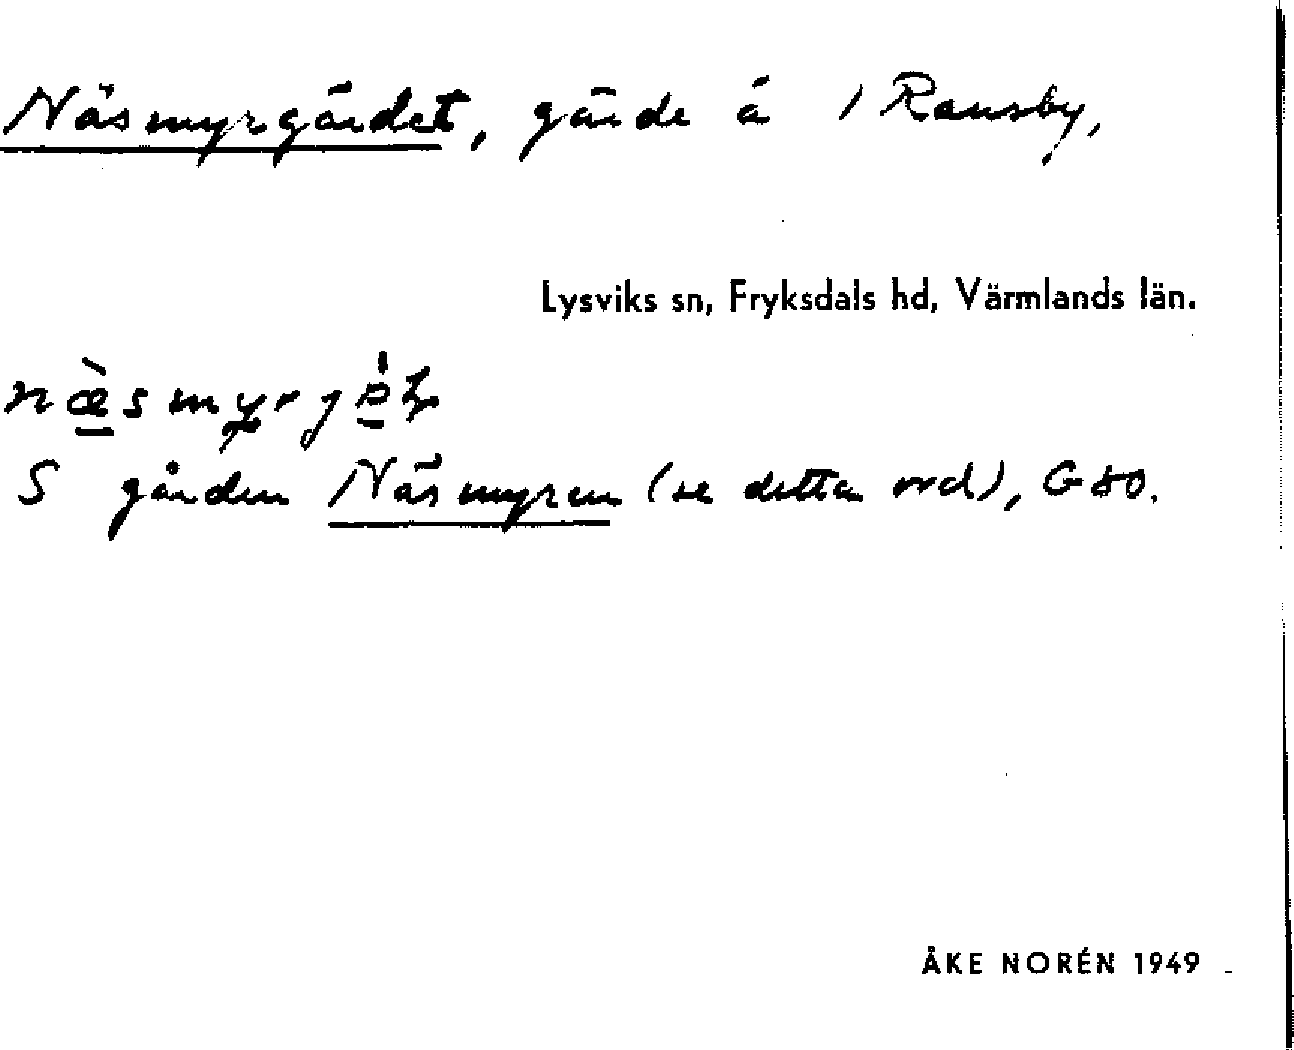 Näsmyrgärdet, gärde å 1 Ransby,
Lysviks sn, Fryksdals hd, Värmlands län.
S gården Näsmyren (se detta ord), G80.
ÅKE NORÉN 1949